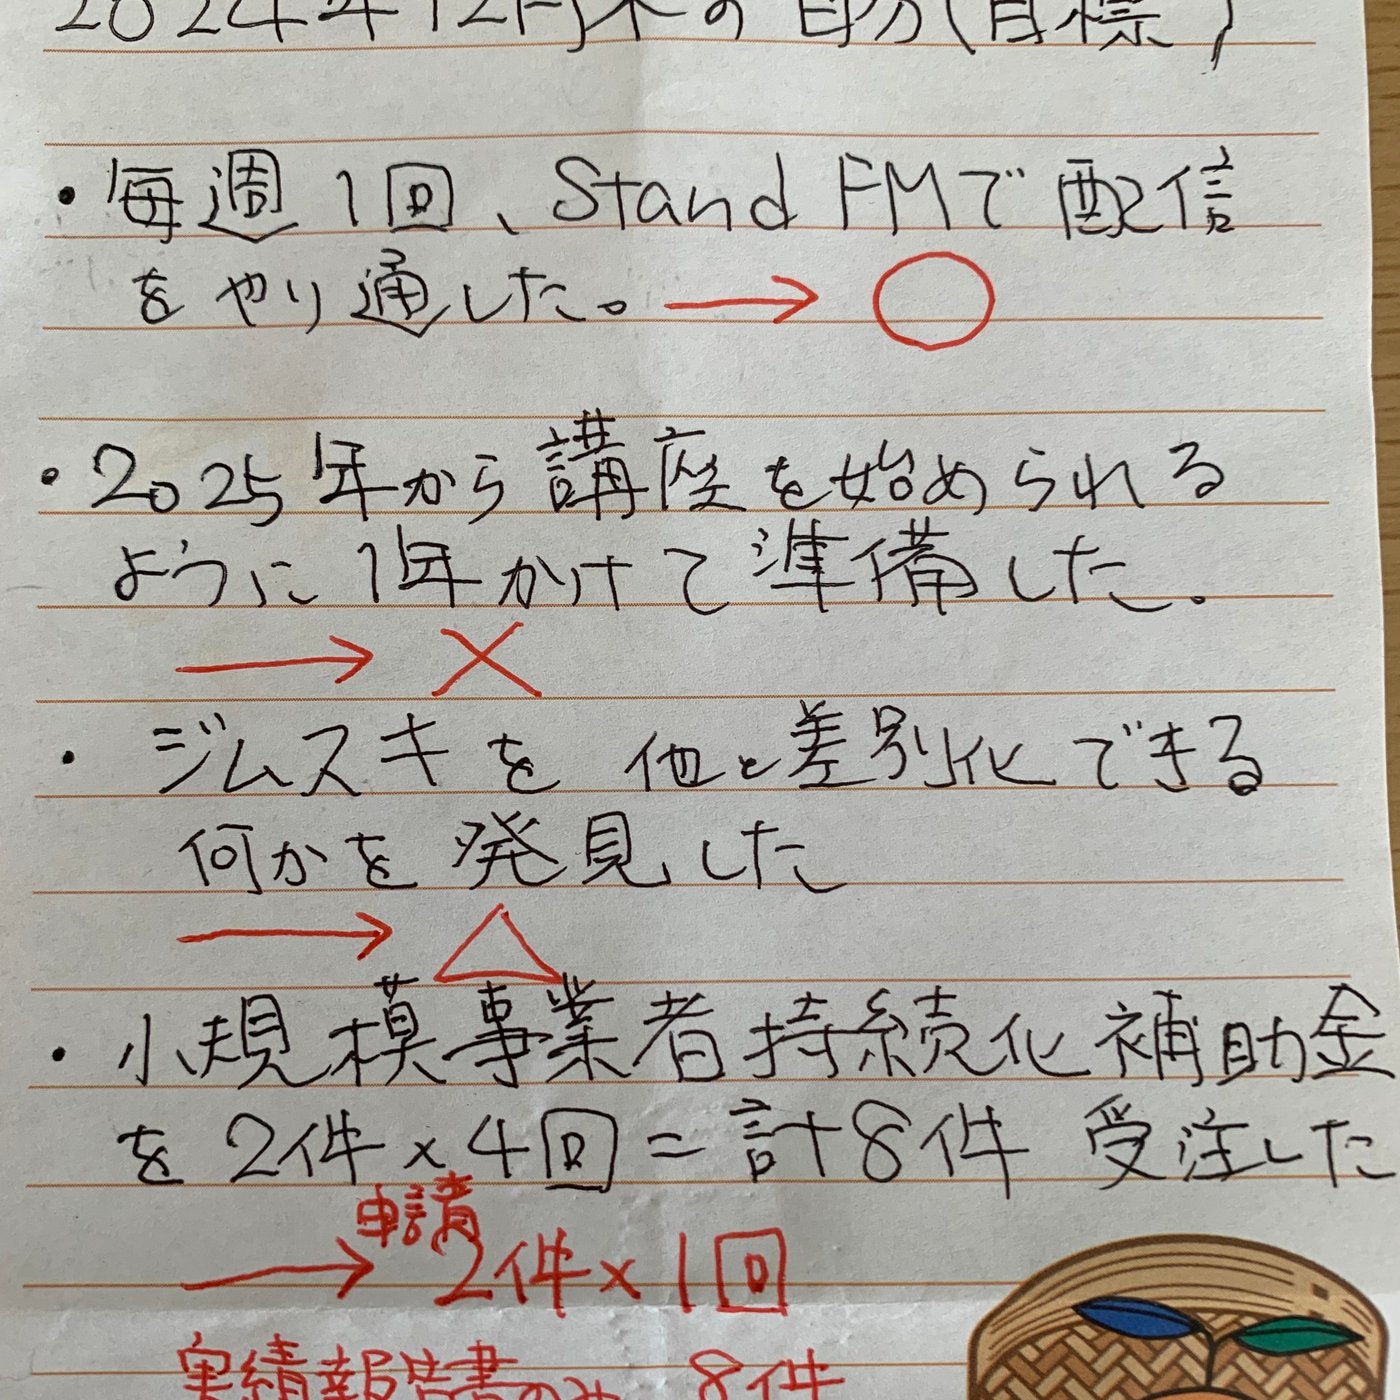 2024年12月末の自分(目標)
・毎週1回、Stand FMで配信
をやり通した。→ ○
・2025年から講座を始められる
ように1年かけて準備した。
→ ×
・ジムスキを他と差別化できる
何かを発見した
→ △
・小規模事業者持続化補助金
を2件×4回=計8件 受注した
→ 申請 2件×1回
実績報告書のみ 8件